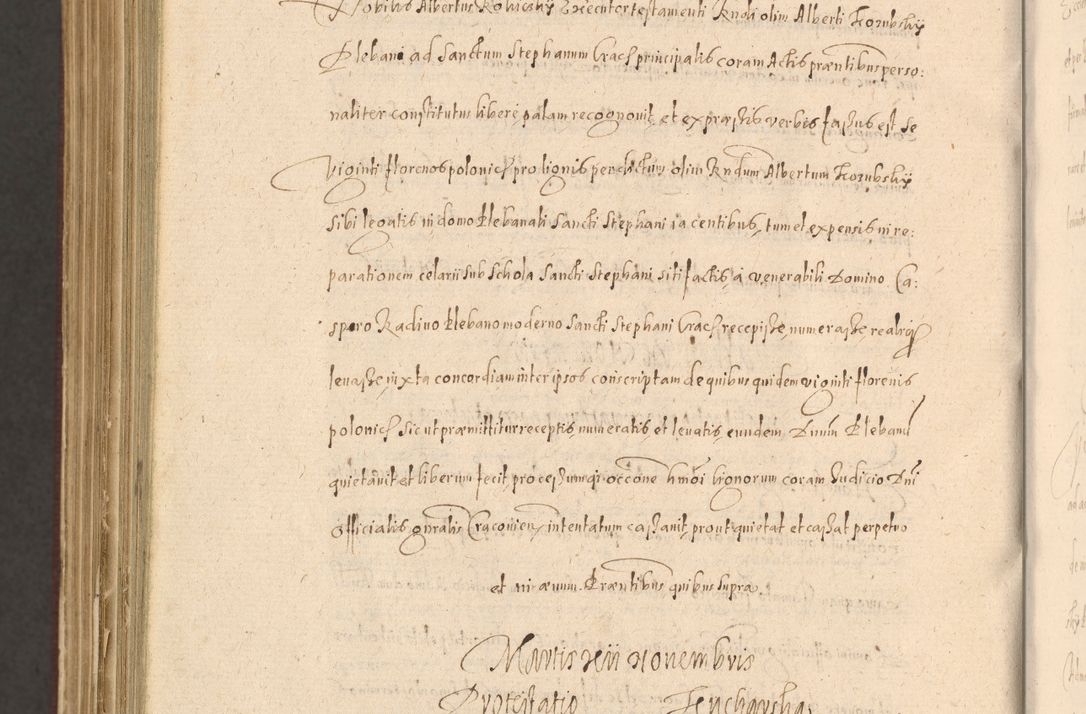 Nobilis Albertus Rohicshÿ Executor testamenti Rndi olim Alberti Kozubskÿ
Plebani ad Sanctum Stephanum Crac principalis coram Actis præntibus perso:
naliter constitutus libere, palam, recognovit, et expræssis verbis fassus est se
Viginti florenos polonic pro lignis per dictum olim Rndum Albertum Kozubskÿ
sibi legatis in domo Plebanali Sancti Stephani iacentibus, tum et expensis in re:
parationem celarii sub Schola Sancti Stephani siti factis, à venerabili Domino Ca:
sparo Radino Plebano moderno Sancti Stephani Crac recepisse, numerasse, realrq
levasse, iuxta concordiam inter ipsos conscriptam de quibus quidem viginti florenis
polonic, sicut præmittitur receptis, numeratis, et levatis, eundem Dnum Plebanu
quietavit et liberum fecit, processumqi occone hmoi lignorum coram Judicio Dni
Officialis gnralis Cracovien, intentatum cassavit, prout quietat et cassat perpetuo
et in ævum. Præntibus quibus supra.
Martis xii Novembris
Protestatio